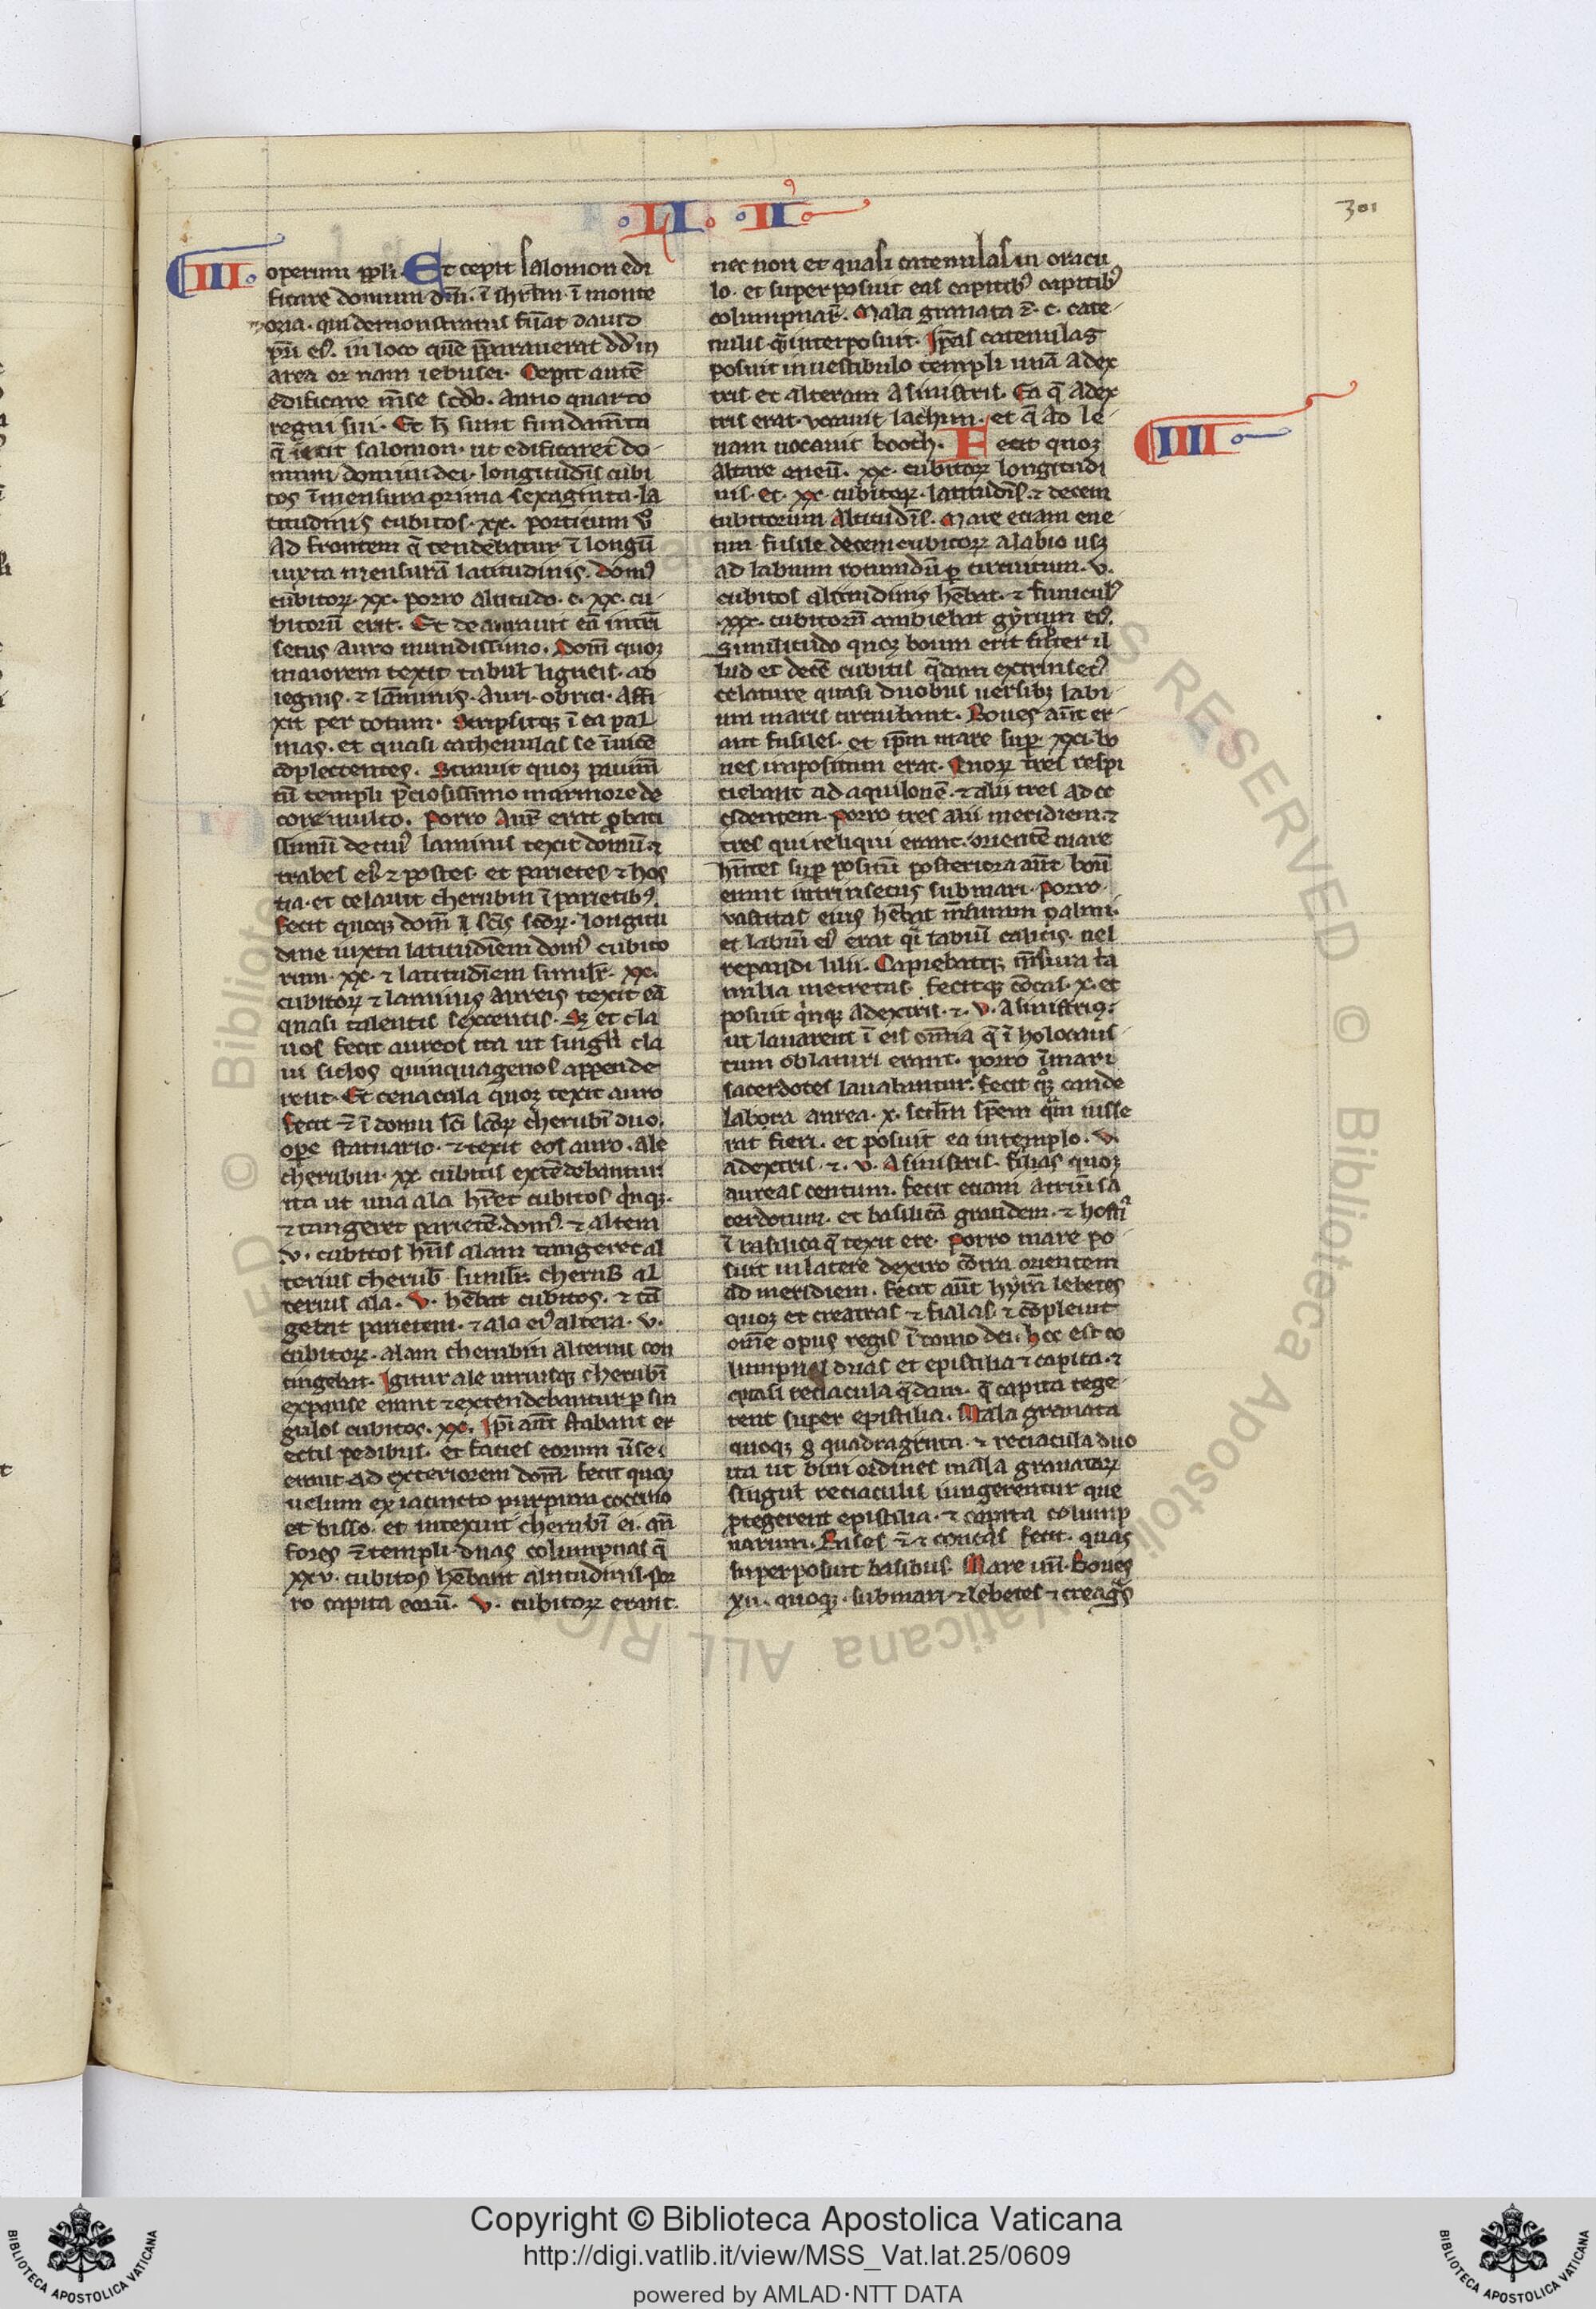 LI. II
301
III.
operum ppli. Et cepit salomon edi
ficare domum dñi. ĩ ihrlm. ĩ monte
moria. qui demonstratus fũat dauid
pr̃i eiꝰ. in loco quẽ p̃parauerat dd̃ in
area ornam iebusei. Cepit autẽ
edificare m̃se scdõ. anno quarto
regni sui. Et h̃ sunt fundam̃ta
q̃ iecit salomon. ut edificaret do
mum domini dei. longitudĩs cubi
tos ĩ mensura prima sexaginta. la
titudinis cubitos. xx. porticum ũo
ad frontem q̃ tendebatur ĩ longũ
iuxta mensurã latitudinis. domꝰ
cubitoꝝ. xx. porro altitudo. c. xx. cu
bitorũ erat. Et deaurauit eã intrĩ
secus auro mundissimo. Domũ quoꝫ
maiorem texit tabul̃ ligneis. ab
iegnis. ⁊ lãminas. auri. obrizi. affi
xit per totum. Scripsitqꝫ ĩ ea pal
mas. et quasi cathenulas se ĩuicẽ
cõplectentes. Strauit quoꝫ pauim̃
tũ templi p̃ciosissimo marmore de
core multo. Porro aur̃ erat ꝓbati
ssimũ de cuiꝰ laminis texit domũ ⁊
trabes eiꝰ ⁊ postes. et parietes ⁊ hos
tia. et celauit cherubin ĩ parietibꝰ.
Fecit quoqꝫ domũ ĩ scĩs scõꝝ. longitu
dine iuxta latitudĩem domꝰ cubito
rum. xx. ⁊ latitudĩem simil̃r. xx.
cubitoꝝ ⁊ laminis aureis texit eã
quasi talentis sexcentis. Sꝫ et cla
uos fecit aureos ita ut singl̃i cla
ui siclos quinquagenos appende
rent. Et cenacula quoꝫ texit auro
Fecit ẽ ĩ domu scĩ scõꝝ cherubĩ duo.
oꝑe statuario. ⁊ texit eos auro. ale
cherubin. xx. cubitis extẽdebantur
ita ut una ala hr̃et cubitos q̃nqꝫ.
⁊ tangeret parietẽ domꝰ. ⁊ altera
v. cubitos hñs alam tangeret al
terius cherub̃. simil̃r cherub̃ al
terius ala. v. hẽbat cubitos. ⁊ tã
gebat parietem. ⁊ ala eiꝰ altera. v.
cubitoꝝ. alam cherubin alterius con
tingebat. Igitur ale utriusqꝫ cherubĩ
expanse erant ⁊ extendebantur ꝑ sin
gulos cubitos. xx. Ip̃i aũt stabant er
ecti pedibus. et facies eorum ũse
erant ad exteriorem domũ. Fecit quoqꝫ
uelum ex iacincto purpura coccino
et bisso. et intexuit cherubĩ ei. añ
fores ẽ templi duas columpnas q̃
xxv. cubitos hẽbant altitudinis. por
ro capita eorũ. v. cubitoꝝ erant.
nec non et quasi catenulas in oracu
lo. et superposuit eas capitibꝰ capitibꝰ
columpnar̃. Mala granata ẽ. c. cate
nulis q̃ interposuit. Ip̃as catenulas
posuit in uestibulo templi unã a dex
tris et alteram a sinistris. Ea q̃ a dex
tris erat. uocauit Iachim. et q̃ ad le
uam uocauit booth. Fecit quoꝫ
IIII
altare eneũ. xx. cubitoꝝ longitudi
nis. et. xx. cubitoꝝ. latitudĩs. ⁊ decem
cubitorum altitudĩs. Mare etiam ene
um fusile decem cubitoꝝ a labio usqꝫ
ad labium rotundũ ꝑ circuitum. v.
cubitos altitudinis hẽbat. ⁊ funiculꝰ
.xxx. cubitorũ ambiebat gyrum eiꝰ.
Similitudo quoꝫ boum erat subter il
lud et decẽ cubitis q̃dam extrinsecꝰ
celature quasi duobus uersibꝫ labi
um maris circuibant. Boues aũt er
ant fusiles. et ip̃m mare suꝑ xxi. bo
ues impositum erat. Quoꝝ tres respi
ciebant ad aquilonẽ. ⁊ alii tres ad oc
cidentem. Porro tres alii meridiem. ⁊
tres qui reliqui erant. orientẽ mare
hñtes suꝑ positũ posteriora aũt boũ
erant intrinsecus sub mari. Porro
uastitas eius hẽbat m̃suram palmi.
et labiũ eiꝰ erat q̃i labiũ calicis. uel
repandi lilii. Capiebatqꝫ m̃sura t̃a
milia metretas. Fecitqꝫ cõcas. x. et
posuit q̃nqꝫ a dextris. ⁊. v. a sinistris.
ut lauarent ĩ eis om̃ia q̃ ĩ holocaus
tum oblaturi erant. porro ĩ mari
sacerdotes lauabantur. Fecit qꝫ cande
labora aurea. x. scd̃m sp̃em q̃m iusse
rat fieri. et posuit ea in templo. v.
a dextris. ⁊. v. a sinistris. Fialas quoꝫ
aureas centum. Fecit etiam atriũ sa
cerdotum. et basilicã grandem. ⁊ hostia
ĩ basilica q̃ texit ere. Porro mare po
suit in latere dextro cõtra orientem
ad meridiem. Fecit aũt hyrã lebetes
quoꝫ et creatras ⁊ fialas. ⁊ cõpleuit
om̃e opus regis ĩ domo dei. hec est co
lumpnas duas et epistilia ⁊ capita. ⁊
quasi reciacula q̃dam. q̃ capita tege
rent super epistilia. Mala granata
quoqꝫ g quadraginta. ⁊ reciacula duo
ita ut bini ordines mala granatoꝝ
singul̃ reciaculis iungerentur que
ꝓtegerent epistilia. ⁊ capita colump
narum. Bases ẽ ⁊ concas fecit. quas
superposuit basibus. Mare unũ. Boues
xii. quoqꝫ. sub mari ⁊ lebetes ⁊ creagr̃s
© Biblioteca Apostolica Vaticana ALL RIGHTS RESERVED
Copyright © Biblioteca Apostolica Vaticana
http://digi.vatlib.it/view/MSS_Vat.lat.25/0609
powered by AMLAD·NTT DATA
BIBLIOTECA APOSTOLICA VATICANA
BIBLIOTECA APOSTOLICA VATICANA